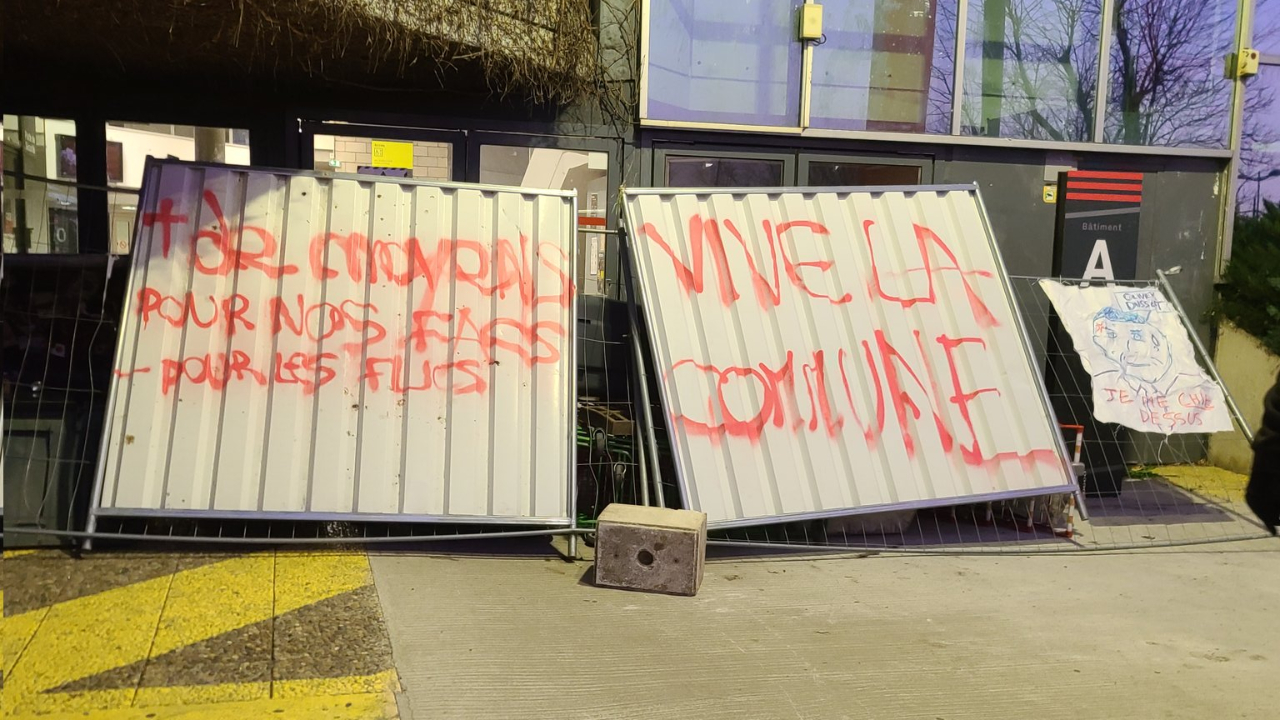 + de moyens
POUR NOS FACS
- POUR LES FLICS
VIVE LA
COMMUNE
Bâtiment
A
JE ME CHIE
DESSUS